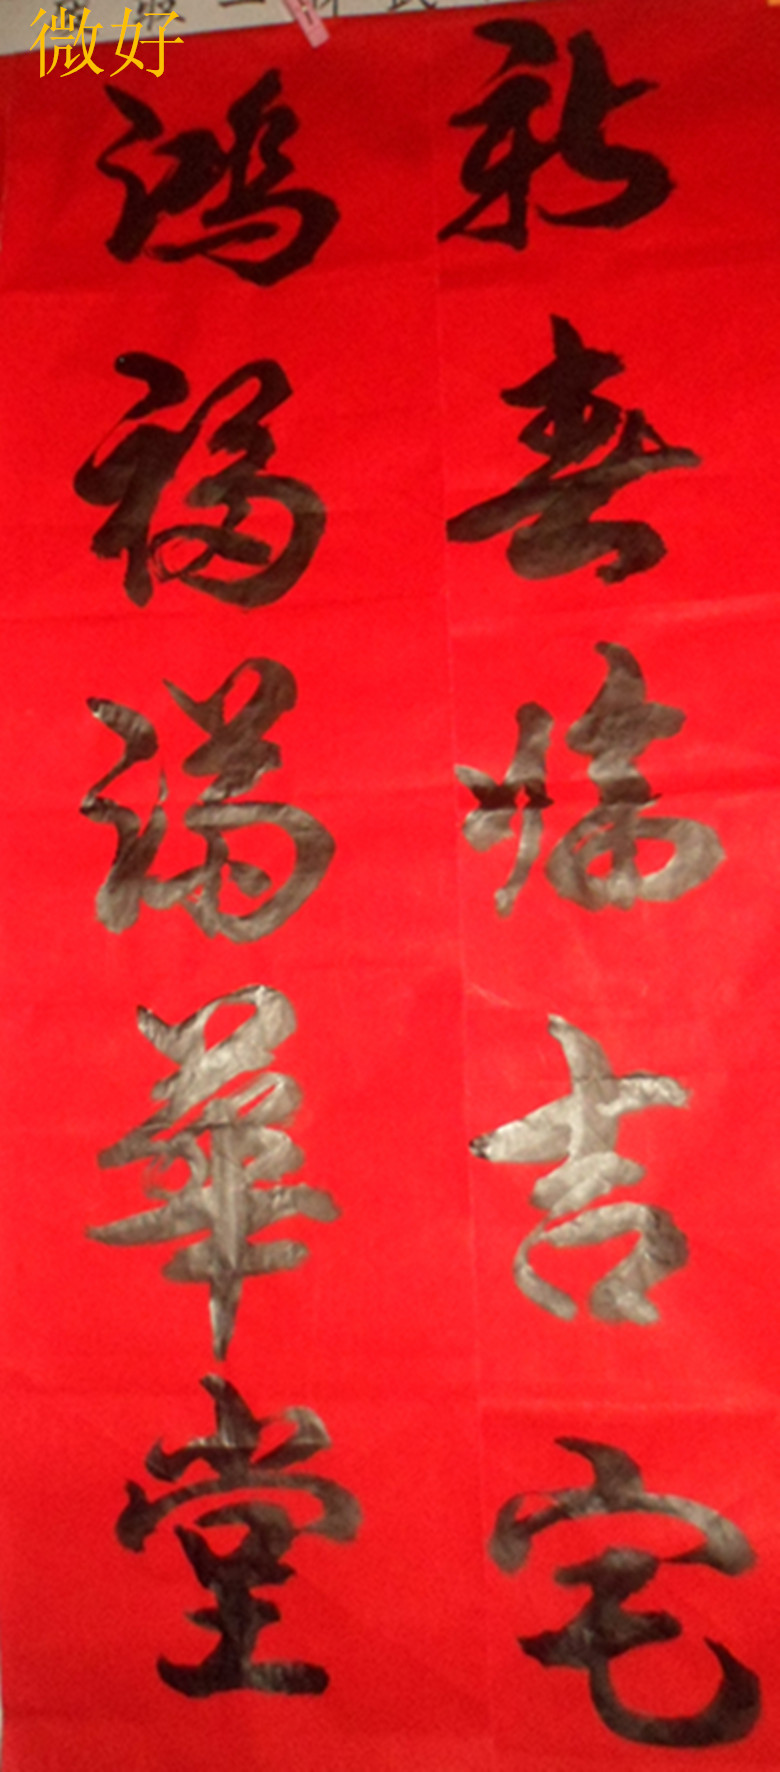 微好
新春临吉宅
鸿福满華堂